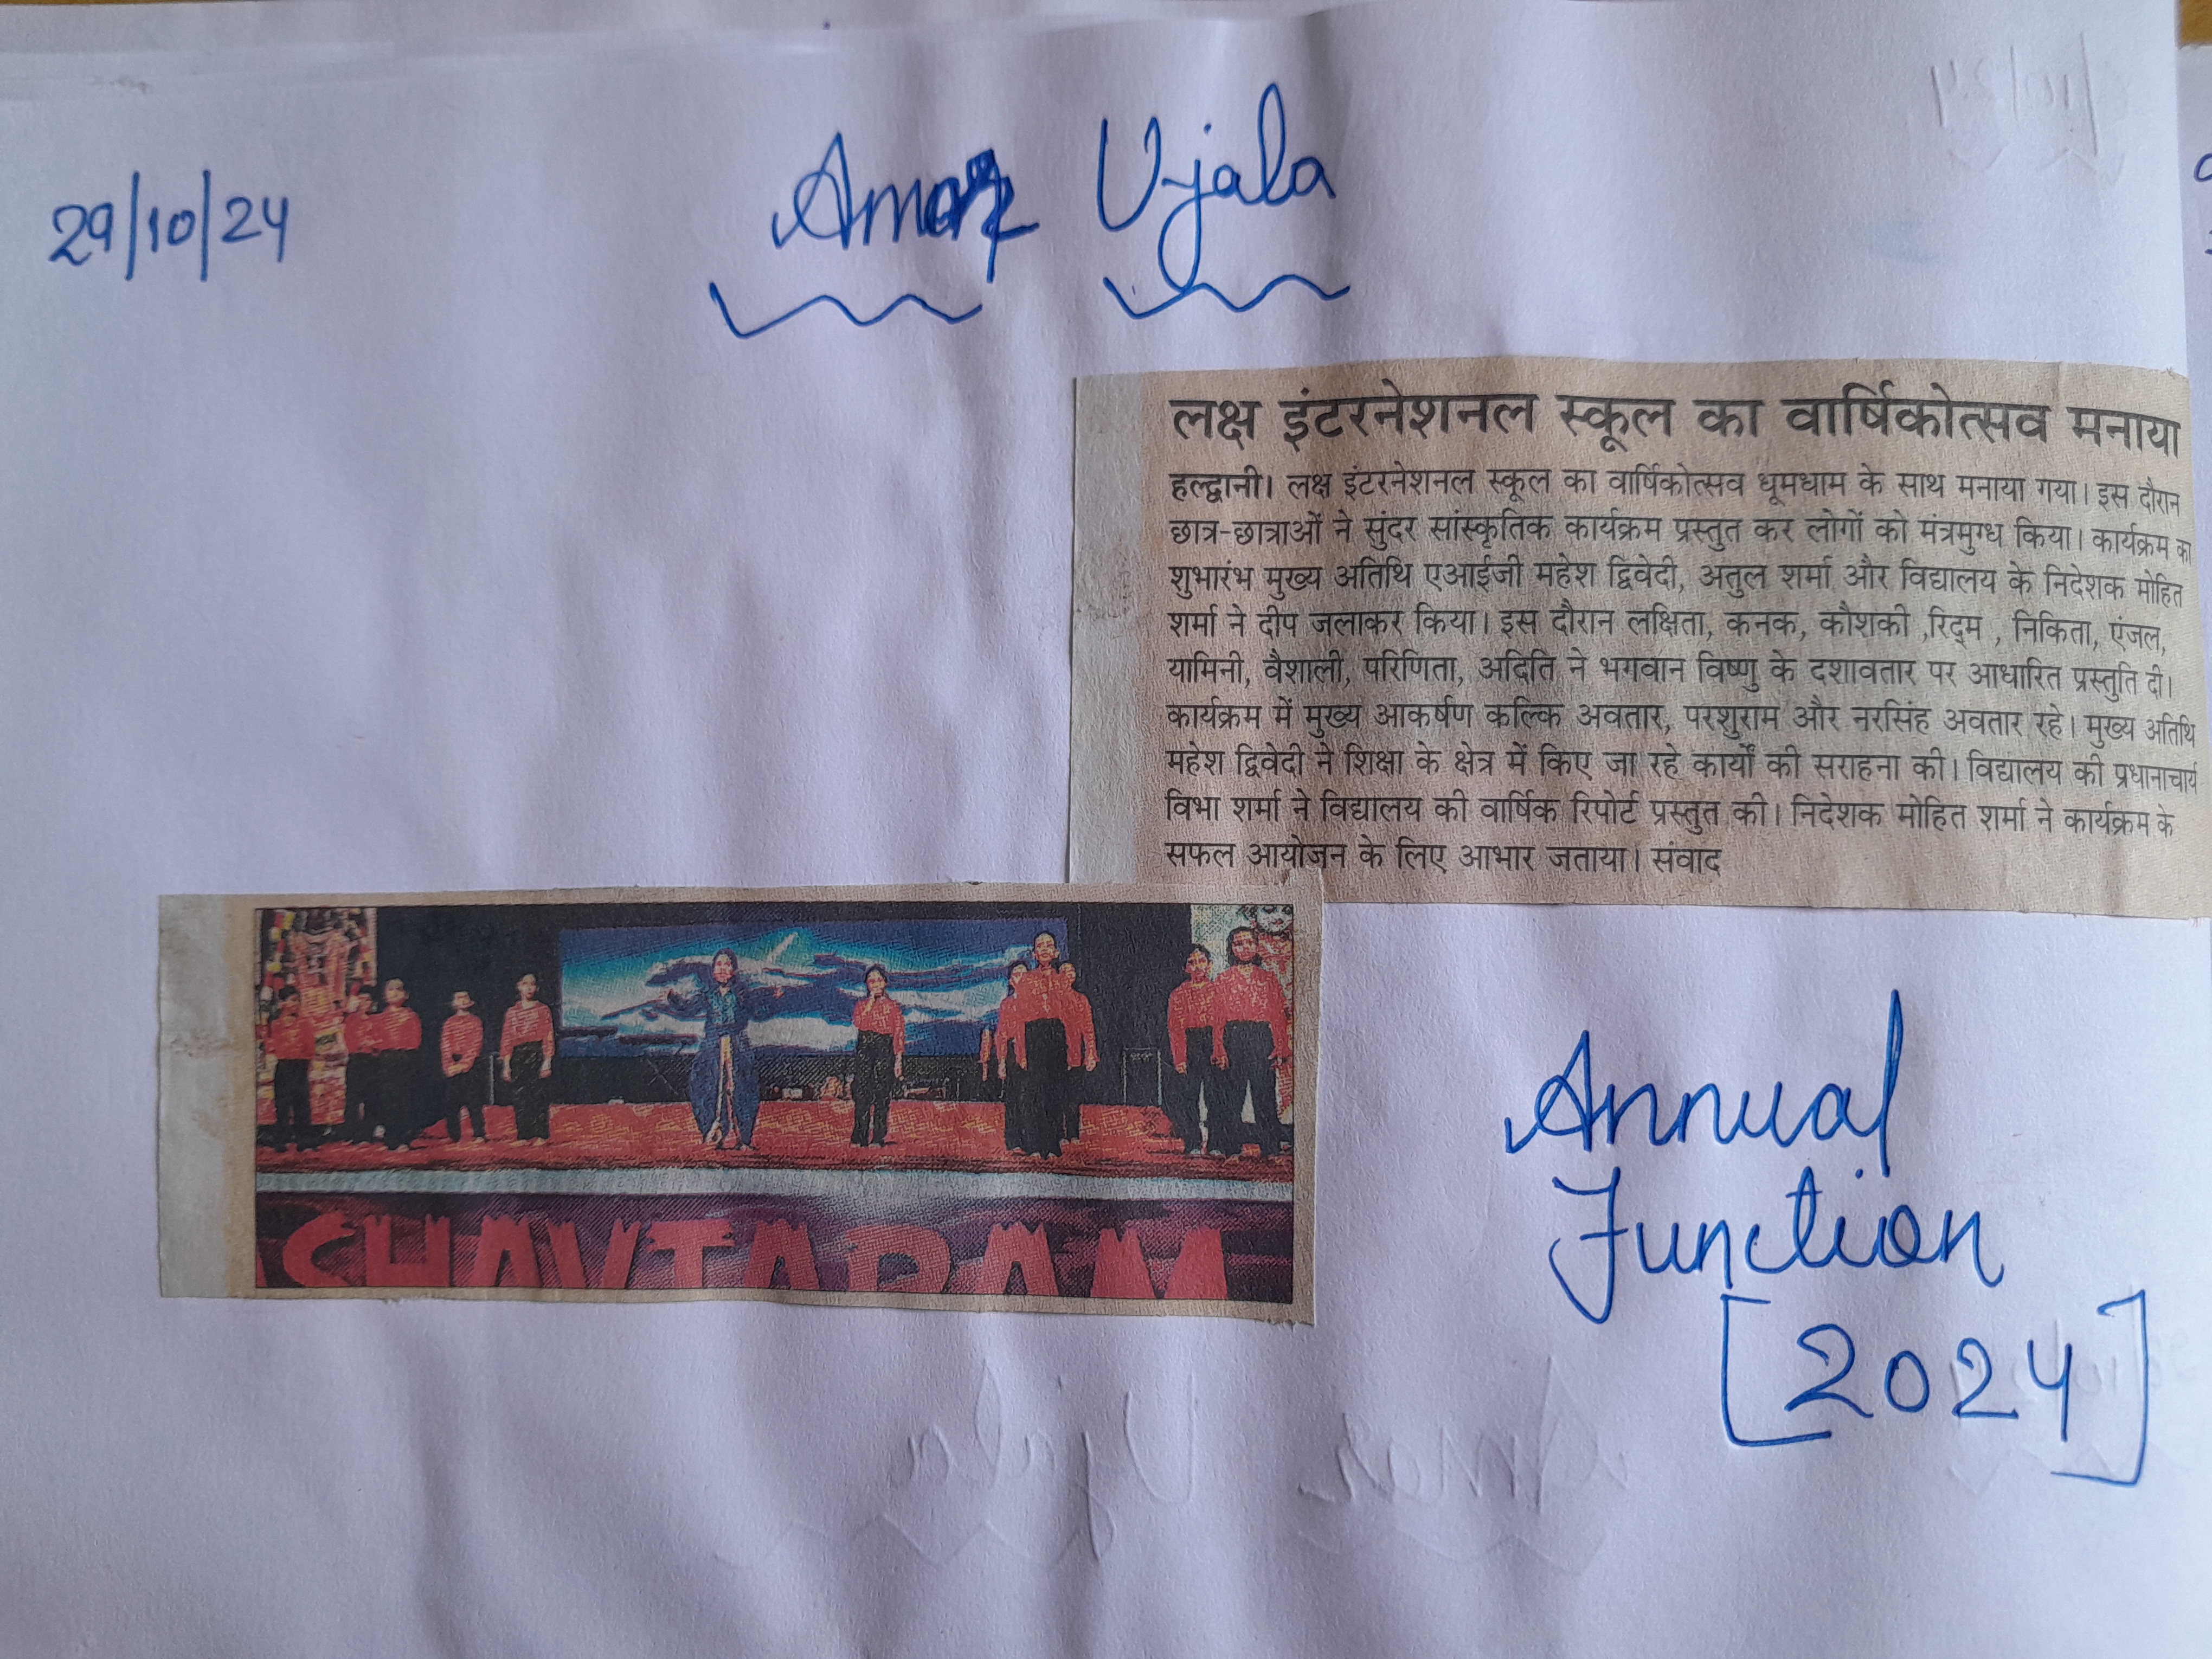 29/10/24
Amar Ujala
लक्ष इंटरनेशनल स्कूल का वार्षिकोत्सव मनाया
हल्द्वानी। लक्ष इंटरनेशनल स्कूल का वार्षिकोत्सव धूमधाम के साथ मनाया गया। इस दौरान
छात्र-छात्राओं ने सुंदर सांस्कृतिक कार्यक्रम प्रस्तुत कर लोगों को मंत्रमुग्ध किया। कार्यक्रम का
शुभारंभ मुख्य अतिथि एआईजी महेश द्विवेदी, अतुल शर्मा और विद्यालय के निदेशक मोहित
शर्मा ने दीप जलाकर किया। इस दौरान लक्षिता, कनक, कौशकी ,रिद्म , निकिता, एंजल,
यामिनी, वैशाली, परिणिता, अदिति ने भगवान विष्णु के दशावतार पर आधारित प्रस्तुति दी।
कार्यक्रम में मुख्य आकर्षण कल्कि अवतार, परशुराम और नरसिंह अवतार रहे। मुख्य अतिथि
महेश द्विवेदी ने शिक्षा के क्षेत्र में किए जा रहे कार्यों की सराहना की। विद्यालय की प्रधानाचार्य
विभा शर्मा ने विद्यालय की वार्षिक रिपोर्ट प्रस्तुत की। निदेशक मोहित शर्मा ने कार्यक्रम के
सफल आयोजन के लिए आभार जताया। संवाद
SHAVTARAM
Annual
Function
[2024]